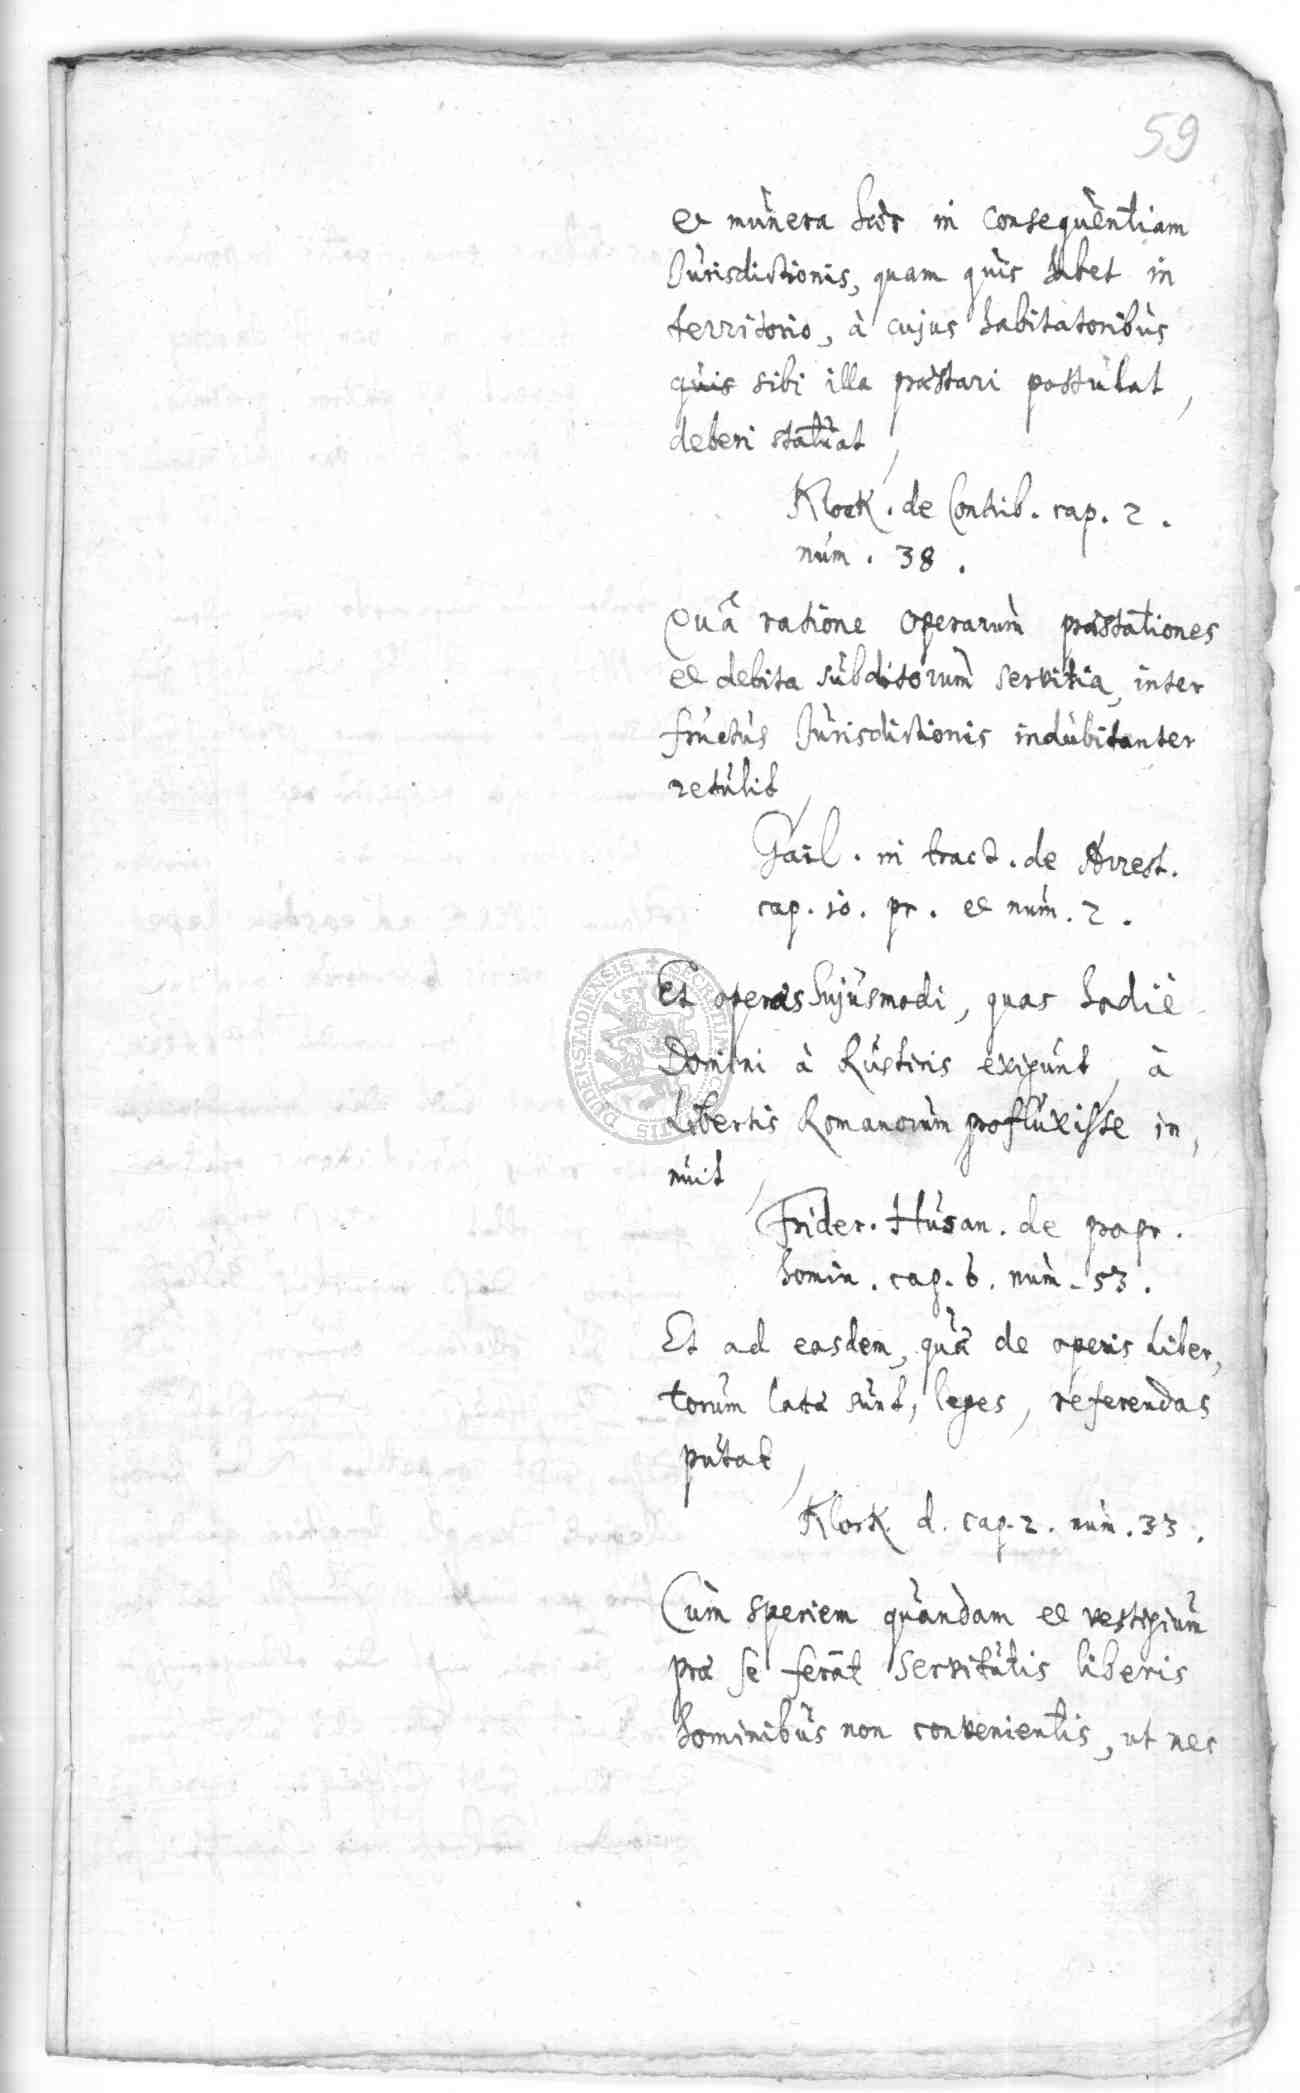 59
et munera hæc in consequentiam
Jurisdictionis, quam quis habet in
territorio, à cujus habitatoribus
quis sibi illa præstari postulat,
deberi statuat,
Klock. de Contrib. cap. 2.
num. 38.
Quâ ratione operarum præstationes
et debita subditorum servitia, inter
fructus Jurisdictionis indubitanter
retulit,
Gail. in tract. de Arrest.
cap. 10. pr. et num. 2.
Et operas hujusmodi, quas hodiè
Domini à Rusticis exigunt, à
Libertis Romanorum profluxisse in,
nuit,
Frider. Husan. de propr.
homin. cap. 6. num. 53.
Et ad easdem, quæ de operis Liber,
torum latæ sunt, leges, referendas
putat,
Klock d. cap. 2. num. 33.
Cùm speciem quandam et vestigium
præ se ferat servitutis liberis
hominibus non convenientis, ut nec
DUDERSTADIENSIS SECRETUM